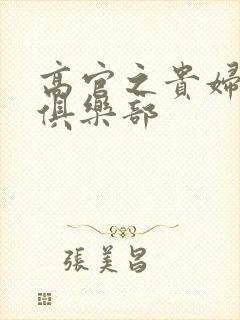 高官之貴婦
俱樂部
張美昌